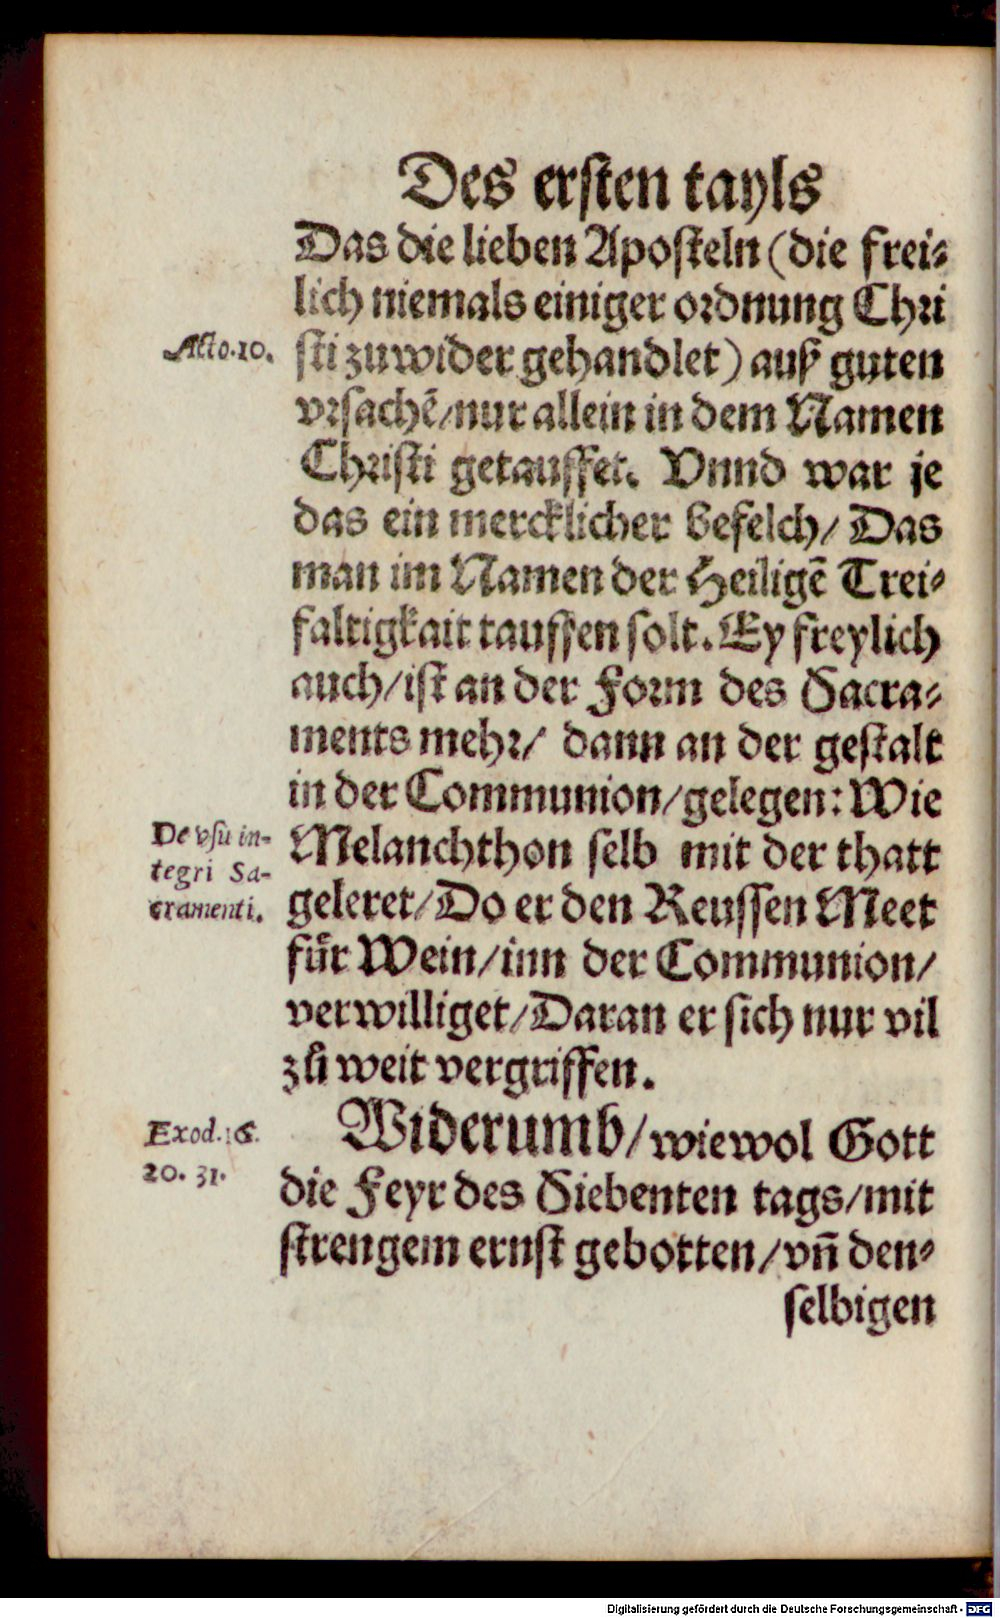 Des ersten tayls
Das die lieben Aposteln (die frei-
lich niemals einiger ordnung Chri
Acto. 10.
sti zuwider gehandlet) auß guten
vrsachẽ/ nur allein in dem Namen
Christi getauffet. Vnnd war je
das ein mercklicher befelch/ Das
man im Namen der Heiligẽ Trei-
faltigkait tauffen solt. Ey freylich
auch/ ist an der Form des Sacra-
ments mehr/ dann an der gestalt
in der Communion/ gelegen: Wie
De vsu in-
tegri Sa-
cramenti.
Melanchthon selb mit der thatt
geleret/ Do er den Reussen Meet
fuͤr Wein/ inn der Communion/
verwilliget/ Daran er sich nur vil
zů weit vergriffen.
Exod. 16.
20. 31.
Widerumb/ wiewol Gott
die Feyr des Siebenten tags/ mit
strengem ernst gebotten/ vñ den-
selbigen
Digitalisierung gefördert durch die Deutsche Forschungsgemeinschaft - DFG